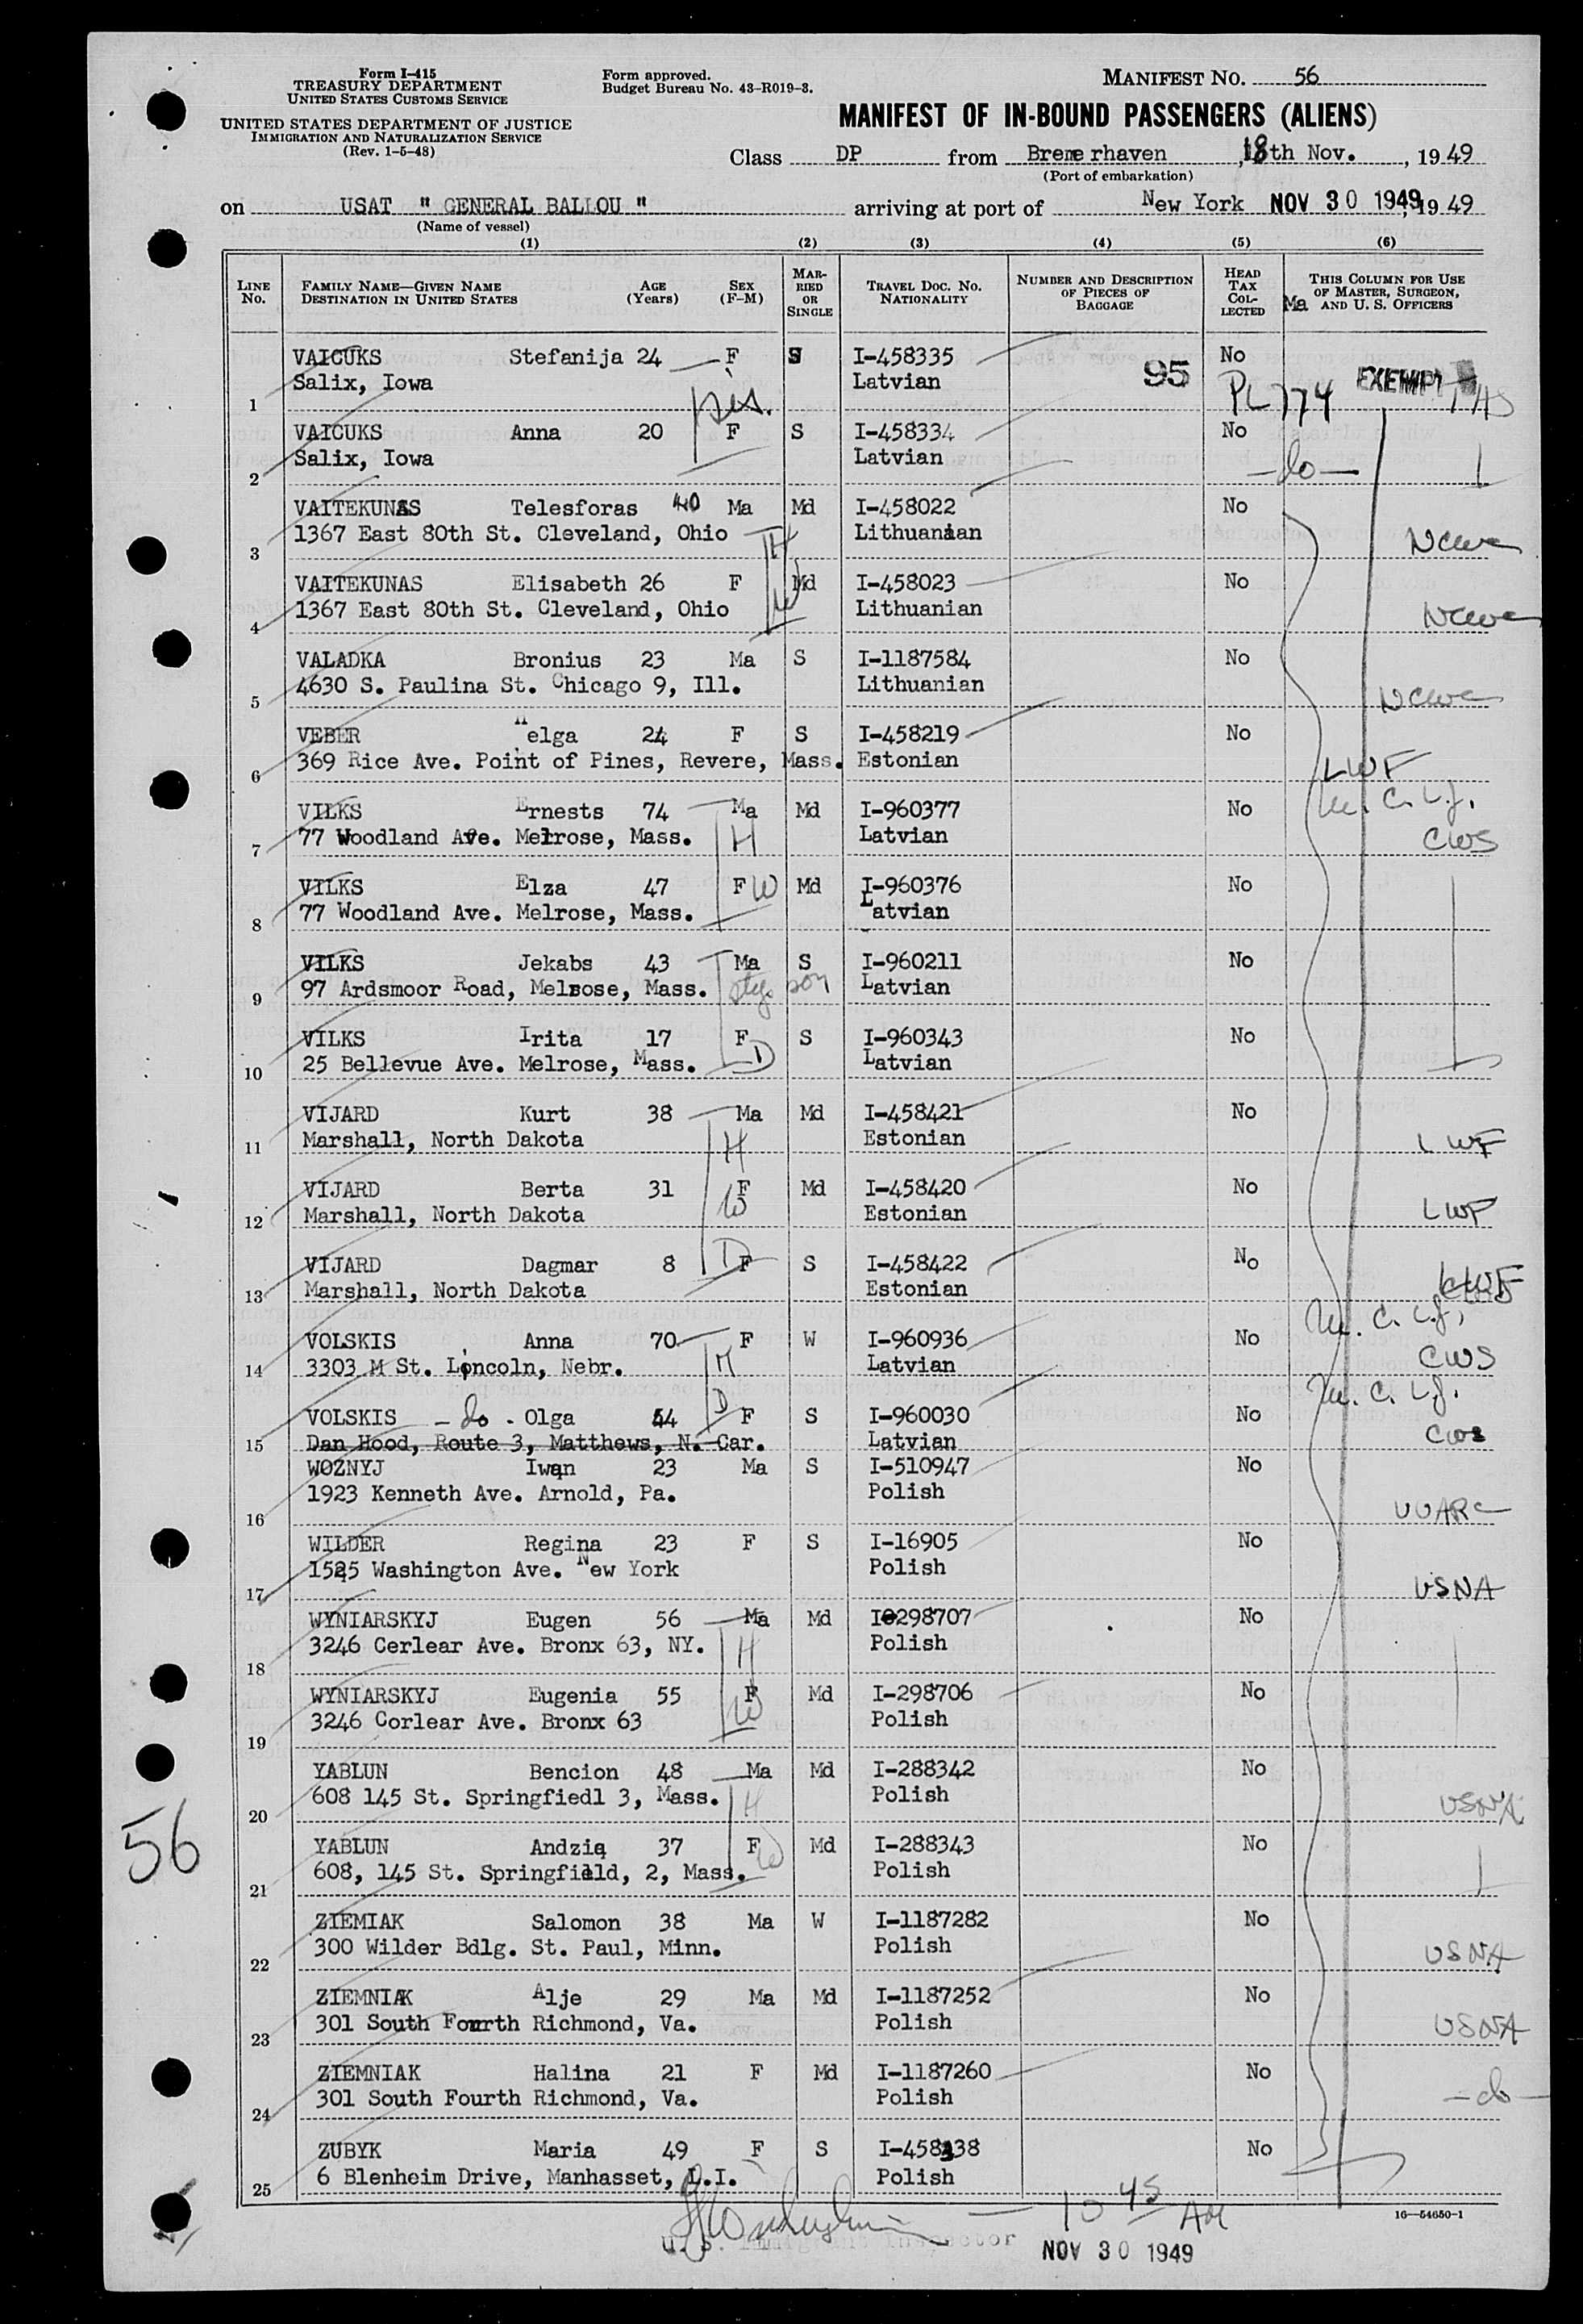 Form I-415
TREASURY DEPARTMENT
UNITED STATES CUSTOMS SERVICE
UNITED STATES DEPARTMENT OF JUSTICE
IMMIGRATION AND NATURALIZATION SERVICE
(Rev. 1-5-48)
Form approved.
Budget Bureau No. 43-R019-3.
MANIFEST NO. 56
MANIFEST OF IN-BOUND PASSENGERS (ALIENS)
Class DP from Bremerhaven, 18th Nov., 1949
(Port of embarkation)
on USAT " GENERAL BALLOU " arriving at port of New York NOV 30 1949, 1949
(Name of vessel)
(1) (2) (3) (4) (5) (6)
LINE No.
FAMILY NAME—GIVEN NAME
DESTINATION IN UNITED STATES
AGE (Years)
SEX (F-M)
MARRIED OR SINGLE
TRAVEL DOC. NO.
NATIONALITY
NUMBER AND DESCRIPTION OF PIECES OF BAGGAGE
HEAD TAX COLLECTED
Ma
THIS COLUMN FOR USE OF MASTER, SURGEON, AND U. S. OFFICERS
VAICUKS Stefanija 24 F S I-458335 No
1 Salix, Iowa sis. Latvian 95 PL 774 EXEMPT
VAICUKS Anna 20 F S I-458334 No
2 Salix, Iowa Latvian -do-
VAITEKUNAS Telesforas 40 Ma Md I-458022 No
3 1367 East 80th St. Cleveland, Ohio H Lithuanian NCWC
VAITEKUNAS Elisabeth 26 F Md I-458023 No
4 1367 East 80th St. Cleveland, Ohio W Lithuanian NCWC
VALADKA Bronius 23 Ma S I-1187584 No
5 4630 S. Paulina St. Chicago 9, Ill. Lithuanian NCWC
VEBER Helga 24 F S I-458219 No
6 369 Rice Ave. Point of Pines, Revere, Mass. Estonian LWF
VILKS Ernests 74 Ma Md I-960377 No
7 77 Woodland Ave. Melrose, Mass. H Latvian CWS
VILKS Elza 47 F W Md I-960376 No
8 77 Woodland Ave. Melrose, Mass. Latvian
VILKS Jekabs 43 Ma S I-960211 No
9 97 Ardsmoor Road, Melrose, Mass. step son Latvian
VILKS Irita 17 F S I-960343 No
10 25 Bellevue Ave. Melrose, Mass. D Latvian
VIJARD Kurt 38 Ma Md I-458421 No
11 Marshall, North Dakota H Estonian LWF
VIJARD Berta 31 F Md I-458420 No
12 Marshall, North Dakota W Estonian LWF
VIJARD Dagmar 8 D F S I-458422 No
13 Marshall, North Dakota Estonian LWF
VOLSKIS Anna 70 F W I-960936 No
14 3303 M St. Lincoln, Nebr. M Latvian CWS
VOLSKIS - do - Olga 44 D F S I-960030 No
15 Dan Hood, Route 3, Matthews, N. Car. Latvian CWS
WOZNYJ Iwan 23 Ma S I-510947 No
16 1923 Kenneth Ave. Arnold, Pa. Polish UUARC
WILDER Regina 23 F S I-16905 No
17 1525 Washington Ave. New York Polish USNA
WYNIARSKYJ Eugen 56 Ma Md I-298707 No
18 3246 Cerlear Ave. Bronx 63, NY. H Polish
WYNIARSKYJ Eugenia 55 F Md I-298706 No
19 3246 Corlear Ave. Bronx 63 W Polish
YABLUN Bencion 48 Ma Md I-288342 No
20 608 145 St. Springfiedl 3, Mass. H Polish USNA
YABLUN Andzia 37 F W Md I-288343 No
21 608, 145 St. Springfield, 2, Mass. Polish
ZIEMIAK Salomon 38 Ma W I-1187282 No
22 300 Wilder Bdlg. St. Paul, Minn. Polish USNA
ZIEMNIAK Alje 29 Ma Md I-1187252 No
23 301 South Fourth Richmond, Va. Polish USNA
ZIEMNIAK Halina 21 F Md I-1187260 No
24 301 South Fourth Richmond, Va. Polish -do-
ZUBYK Maria 49 F S I-458338 No
25 6 Blenheim Drive, Manhasset, L.I. Polish
56
16—54650-1
10 45 AM
U. S. Immigrant Inspector
NOV 30 1949